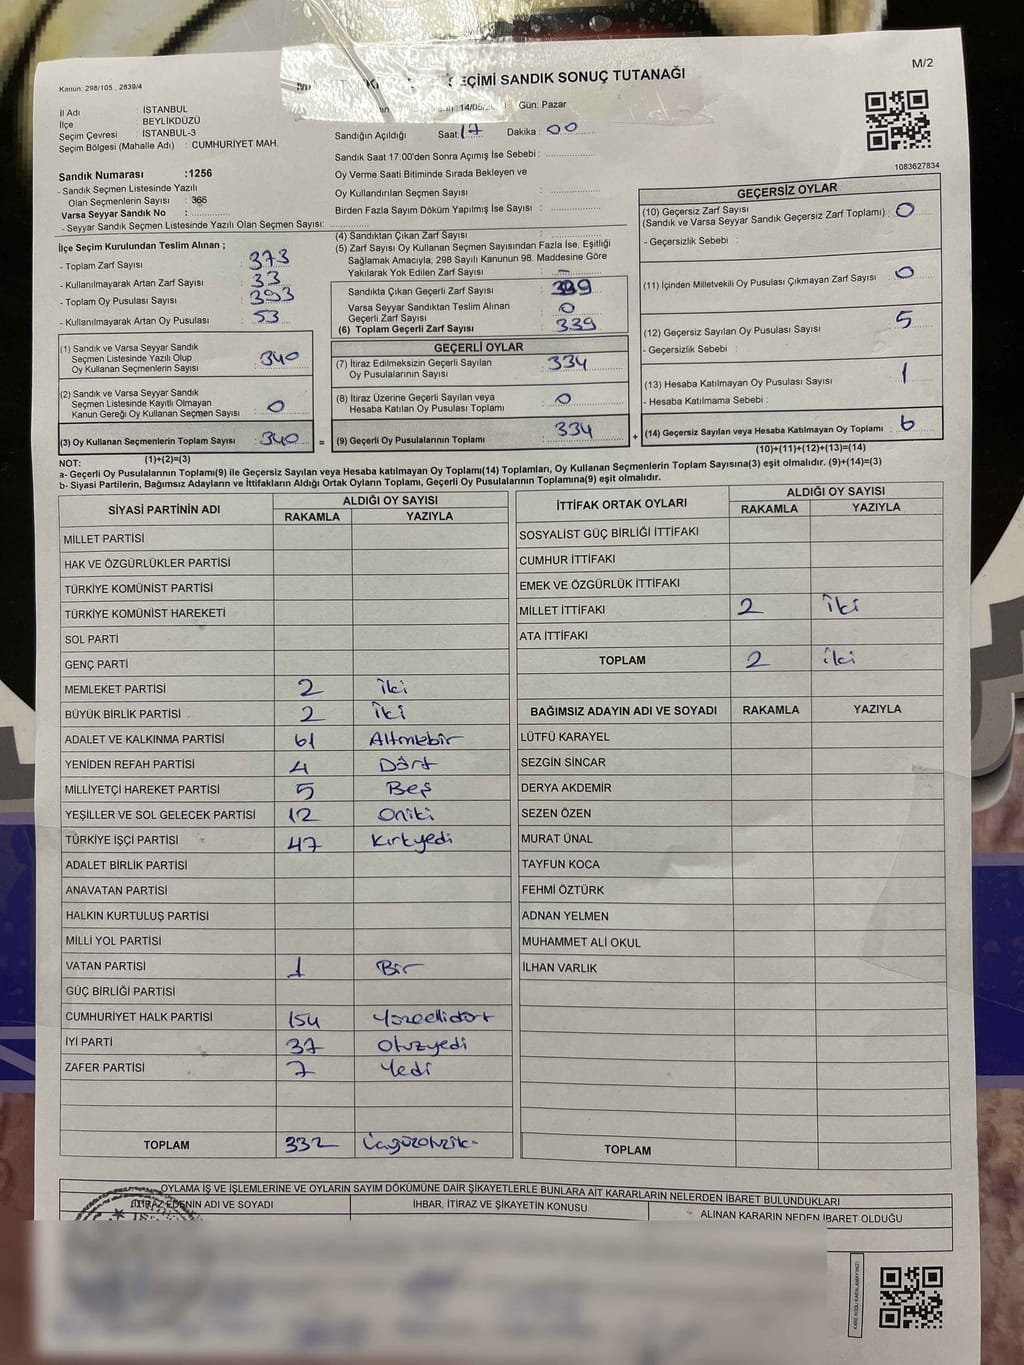 M/2
Kanun: 298/105 , 2839/4
SEÇİMİ SANDIK SONUÇ TUTANAĞI
14/05/ Gün: Pazar
İl Adı : İSTANBUL
İlçe : BEYLİKDÜZÜ
Seçim Çevresi : İSTANBUL-3
Seçim Bölgesi (Mahalle Adı) : CUMHURİYET MAH.
Sandık Numarası :1256
- Sandık Seçmen Listesinde Yazılı
Olan Seçmenlerin Sayısı : 366
Varsa Seyyar Sandık No :
- Seyyar Sandık Seçmen Listesinde Yazılı Olan Seçmen Sayısı:
Sandığın Açıldığı Saat: 17 Dakika : 00
Sandık Saat 17:00'den Sonra Açımış İse Sebebi :
Oy Verme Saati Bitiminde Sırada Bekleyen ve
Oy Kullandırılan Seçmen Sayısı :
Birden Fazla Sayım Döküm Yapılmış İse Sayısı :
1083627834
İlçe Seçim Kurulundan Teslim Alınan ;
- Toplam Zarf Sayısı : 373
- Kullanılmayarak Artan Zarf Sayısı : 33
- Toplam Oy Pusulası Sayısı : 393
- Kullanılmayarak Artan Oy Pusulası : 53
(1) Sandık ve Varsa Seyyar Sandık
Seçmen Listesinde Yazılı Olup
Oy Kullanan Seçmenlerin Sayısı : 340
(2) Sandık ve Varsa Seyyar Sandık
Seçmen Listesinde Kayıtlı Olmayan
Kanun Gereği Oy Kullanan Seçmen Sayısı : 0
(3) Oy Kullanan Seçmenlerin Toplam Sayısı : 340 =
(1)+(2)=(3)
(4) Sandıktan Çıkan Zarf Sayısı :
(5) Zarf Sayısı Oy Kullanan Seçmen Sayısından Fazla İse, Eşitliği
Sağlamak Amacıyla; 298 Sayılı Kanunun 98. Maddesine Göre
Yakılarak Yok Edilen Zarf Sayısı : –
Sandıkta Çıkan Geçerli Zarf Sayısı : 339
Varsa Seyyar Sandıktan Teslim Alınan
Geçerli Zarf Sayısı : 0
(6) Toplam Geçerli Zarf Sayısı : 339
GEÇERLİ OYLAR
(7) İtiraz Edilmeksizin Geçerli Sayılan
Oy Pusulalarının Sayısı : 334
(8) İtiraz Üzerine Geçerli Sayılan veya
Hesaba Katılan Oy Pusulası Toplamı : 0
(9) Geçerli Oy Pusulalarının Toplamı : 334 +
GEÇERSİZ OYLAR
(10) Geçersiz Zarf Sayısı
(Sandık ve Varsa Seyyar Sandık Geçersiz Zarf Toplamı) : 0
- Geçersizlik Sebebi :
(11) İçinden Milletvekili Oy Pusulası Çıkmayan Zarf Sayısı : 0
(12) Geçersiz Sayılan Oy Pusulası Sayısı : 5
- Geçersizlik Sebebi :
(13) Hesaba Katılmayan Oy Pusulası Sayısı : 1
- Hesaba Katılmama Sebebi :
(14) Geçersiz Sayılan veya Hesaba Katılmayan Oy Toplamı : 6
(10)+(11)+(12)+(13)=(14)
NOT:
a- Geçerli Oy Pusulalarının Toplamı(9) ile Geçersiz Sayılan veya Hesaba katılmayan Oy Toplamı(14) Toplamları, Oy Kullanan Seçmenlerin Toplam Sayısına(3) eşit olmalıdır. (9)+(14)=(3)
b- Siyasi Partilerin, Bağımsız Adayların ve İttifakların Aldığı Ortak Oyların Toplamı, Geçerli Oy Pusulalarının Toplamına(9) eşit olmalıdır.
SİYASİ PARTİNİN ADI ALDIĞI OY SAYISI
RAKAMLA YAZIYLA
MİLLET PARTİSİ
HAK VE ÖZGÜRLÜKLER PARTİSİ
TÜRKİYE KOMÜNİST PARTİSİ
TÜRKİYE KOMÜNİST HAREKETİ
SOL PARTİ
GENÇ PARTİ
MEMLEKET PARTİSİ 2 İki
BÜYÜK BİRLİK PARTİSİ 2 İki
ADALET VE KALKINMA PARTİSİ 61 Altmışbir
YENİDEN REFAH PARTİSİ 4 Dört
MİLLİYETÇİ HAREKET PARTİSİ 5 Beş
YEŞİLLER VE SOL GELECEK PARTİSİ 12 Oniki
TÜRKİYE İŞÇİ PARTİSİ 47 Kırkyedi
ADALET BİRLİK PARTİSİ
ANAVATAN PARTİSİ
HALKIN KURTULUŞ PARTİSİ
MİLLİ YOL PARTİSİ
VATAN PARTİSİ 1 Bir
GÜÇ BİRLİĞİ PARTİSİ
CUMHURİYET HALK PARTİSİ 154 Yüzellidört
İYİ PARTİ 37 Otuzyedi
ZAFER PARTİSİ 7 Yedi
TOPLAM 332
İTTİFAK ORTAK OYLARI ALDIĞI OY SAYISI
RAKAMLA YAZIYLA
SOSYALİST GÜÇ BİRLİĞİ İTTİFAKI
CUMHUR İTTİFAKI
EMEK VE ÖZGÜRLÜK İTTİFAKI
MİLLET İTTİFAKI 2 İki
ATA İTTİFAKI
TOPLAM 2 İki
BAĞIMSIZ ADAYIN ADI VE SOYADI RAKAMLA YAZIYLA
LÜTFÜ KARAYEL
SEZGİN SİNCAR
DERYA AKDEMİR
SEZEN ÖZEN
MURAT ÜNAL
TAYFUN KOCA
FEHMİ ÖZTÜRK
ADNAN YELMEN
MUHAMMET ALİ OKUL
İLHAN VARLIK
TOPLAM
OYLAMA İŞ VE İŞLEMLERİNE VE OYLARIN SAYIM DÖKÜMÜNE DAİR ŞİKAYETLERLE BUNLARA AİT KARARLARIN NELERDEN İBARET BULUNDUKLARI
İTİRAZ EDENİN ADI VE SOYADI İHBAR, İTİRAZ VE ŞİKAYETİN KONUSU ALINAN KARARIN NEDEN İBARET OLDUĞU